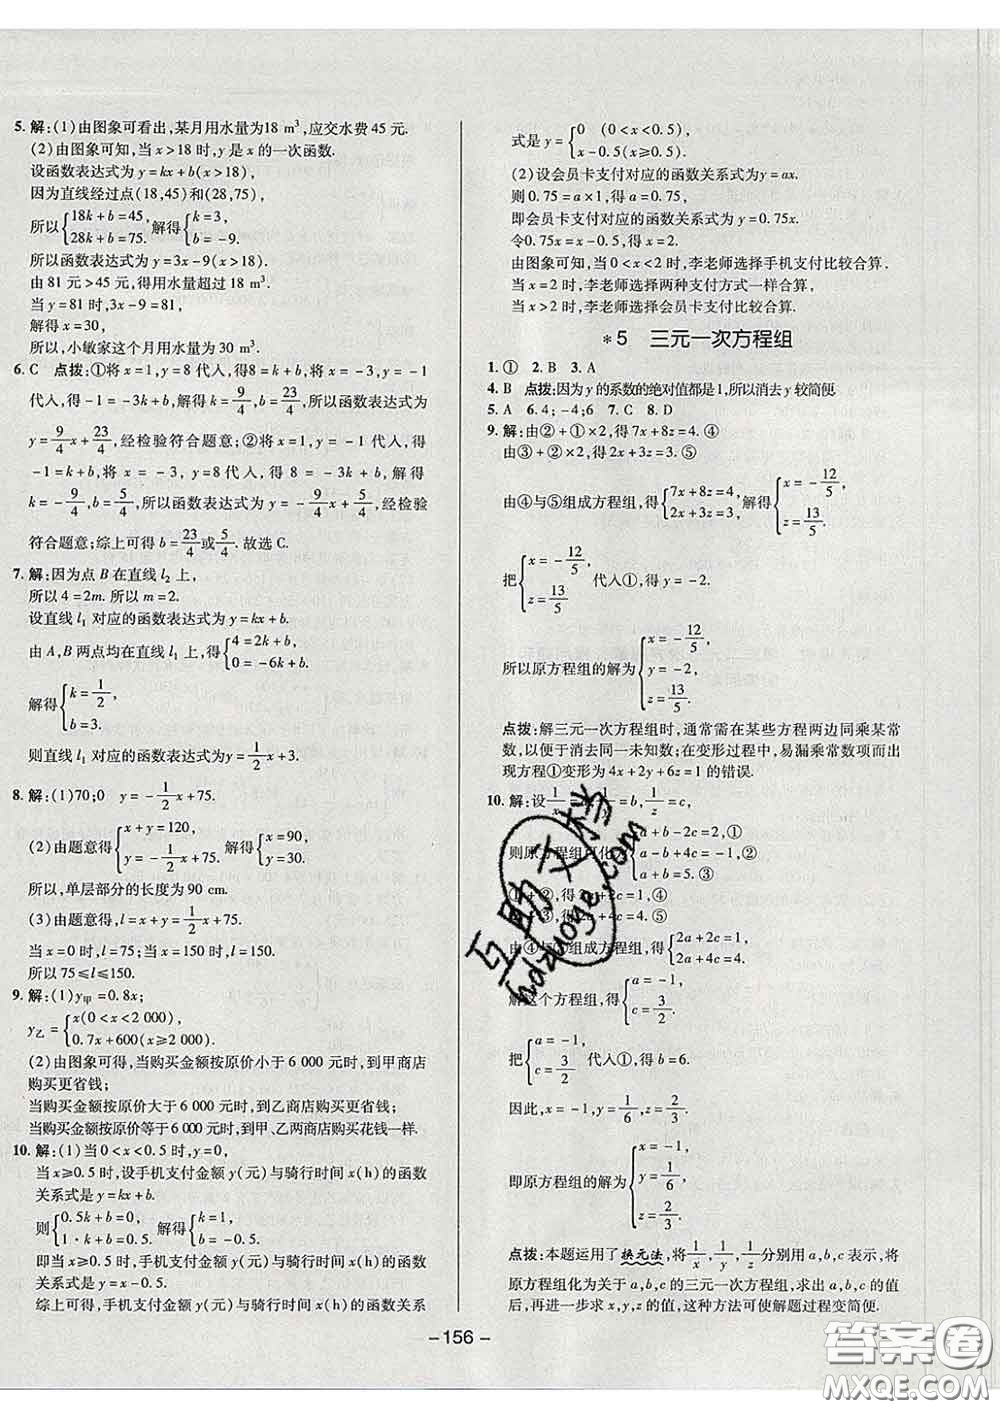 5. 解:(1)由图象可看出,某月用水量为18 m³,应交水费45元.
(2)由图象可知,当x>18时,y是x的一次函数.
设函数表达式为y=kx+b(x>18),
因为直线经过点(18,45)和(28,75),
所以{18k+b=45, 28k+b=75. 解得{k=3, b=-9.
所以函数表达式为y=3x-9(x>18).
由81元>45元,得用水量超过18 m³.
当y=81时,3x-9=81,
解得x=30,
所以,小敏家这个月用水量为30 m³.
6. C 点拨:①将x=1,y=8代入,得8=k+b,将x=-3,y=-1
代入,得-1=-3k+b,解得k=9/4,b=23/4,所以函数表达式为
y=9/4x+23/4,经检验符合题意;②将x=1,y=-1代入,得
-1=k+b,将x=-3,y=8代入,得8=-3k+b,解得
k=-9/4,b=5/4,所以函数表达式为y=-9/4x+5/4,经检验
符合题意;综上可得b=23/4或5/4.故选C.
7. 解:因为点B在直线l₂上,
所以4=2m.所以m=2.
设直线l₁对应的函数表达式为y=kx+b.
由A,B两点均在直线l₁上,得{4=2k+b, 0=-6k+b.
解得{k=1/2, b=3.
则直线l₁对应的函数表达式为y=1/2x+3.
8. 解:(1)70;0 y=-1/2x+75.
(2)由题意得{x+y=120, y=-1/2x+75. 解得{x=90, y=30.
所以,单层部分的长度为90 cm.
(3)由题意得,l=x+y=1/2x+75.
当x=0时,l=75;当x=150时,l=150.
所以75≤l≤150.
9. 解:(1)y甲=0.8x;
y乙={x(0<x<2 000), 0.7x+600(x≥2 000).
(2)由图象可得,当购买金额按原价小于6 000元时,到甲商店
购买更省钱;
当购买金额按原价大于6 000元时,到乙商店购买更省钱;
当购买金额按原价等于6 000元时,到甲、乙两商店购买花钱一样.
10. 解:(1)当0<x<0.5时,y=0,
当x≥0.5时,设手机支付金额y(元)与骑行时间x(h)的函数
关系式是y=kx+b.
则{0.5k+b=0, 1·k+b=0.5. 解得{k=1, b=-0.5.
即当x≥0.5时,手机支付金额y(元)与骑行时间x(h)的函数
关系式是y=x-0.5.
综上可得,手机支付金额y(元)与骑行时间x(h)的函数关系
式是y={0 (0<x<0.5), x-0.5(x≥0.5).
(2)设会员卡支付对应的函数关系式为y=ax.
则0.75=a×1,得a=0.75,
即会员卡支付对应的函数关系式为y=0.75x.
令0.75x=x-0.5,得x=2.
由图象可知,当0<x<2时,李老师选择手机支付比较合算.
当x=2时,李老师选择两种支付方式一样合算.
当x>2时,李老师选择会员卡支付比较合算.
*5 三元一次方程组
1. ① 2. B 3. A
4. B 点拨:因为y的系数的绝对值都是1,所以消去y较简便.
5. A 6. 4;-4;6 7. C 8. D
9. 解:由②+①×2,得7x+8z=4. ④
由③+②×2,得2x+3z=3. ⑤
由④与⑤组成方程组,得{7x+8z=4, 2x+3z=3. 解得{x=-12/5, z=13/5.
把{x=-12/5, z=13/5 代入①,得y=-2.
所以原方程组的解为{x=-12/5, y=-2, z=13/5.
点拨:解三元一次方程组时,通常需在某些方程两边同乘某常
数,以便于消去同一未知数;在变形过程中,易漏乘常数项而出
现方程①变形为4x+2y+6z=1的错误.
10. 解:设1/x=a,1/y=b,1/z=c,
则原方程组可化为{a+b-2c=2,① a-b+4c=-1,② a+b=5.③
①+②,得2a+2c=1. ④
②+③,得2a+4c=4. ⑤
由④与⑤组成方程组,得{2a+2c=1, 2a+4c=4.
解这个方程组,得{a=-1, c=3/2.
把{a=-1, c=3/2 代入①,得b=6.
因此,x=-1,y=1/6,z=2/3.
即原方程组的解为{x=-1, y=1/6, z=2/3.
点拨:本题运用了换元法,将1/x,1/y,1/z分别用a,b,c表示,将
原方程组化为关于a,b,c的三元一次方程组,求出a,b,c的值
后,再进一步求x,y,z的值,这种方法可使解题过程变简便.
互助文档
hdzuoye.com
-156-
答案圈
MXQE.COM